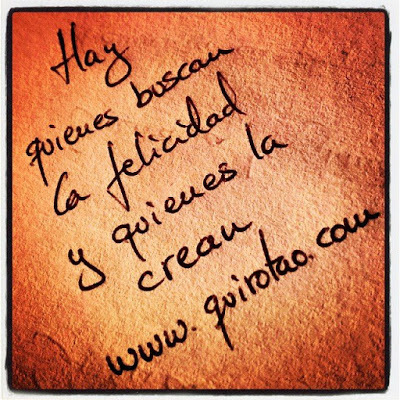 Hay
quienes buscan
la felicidad
y quienes la
crean
www.quirotao.com